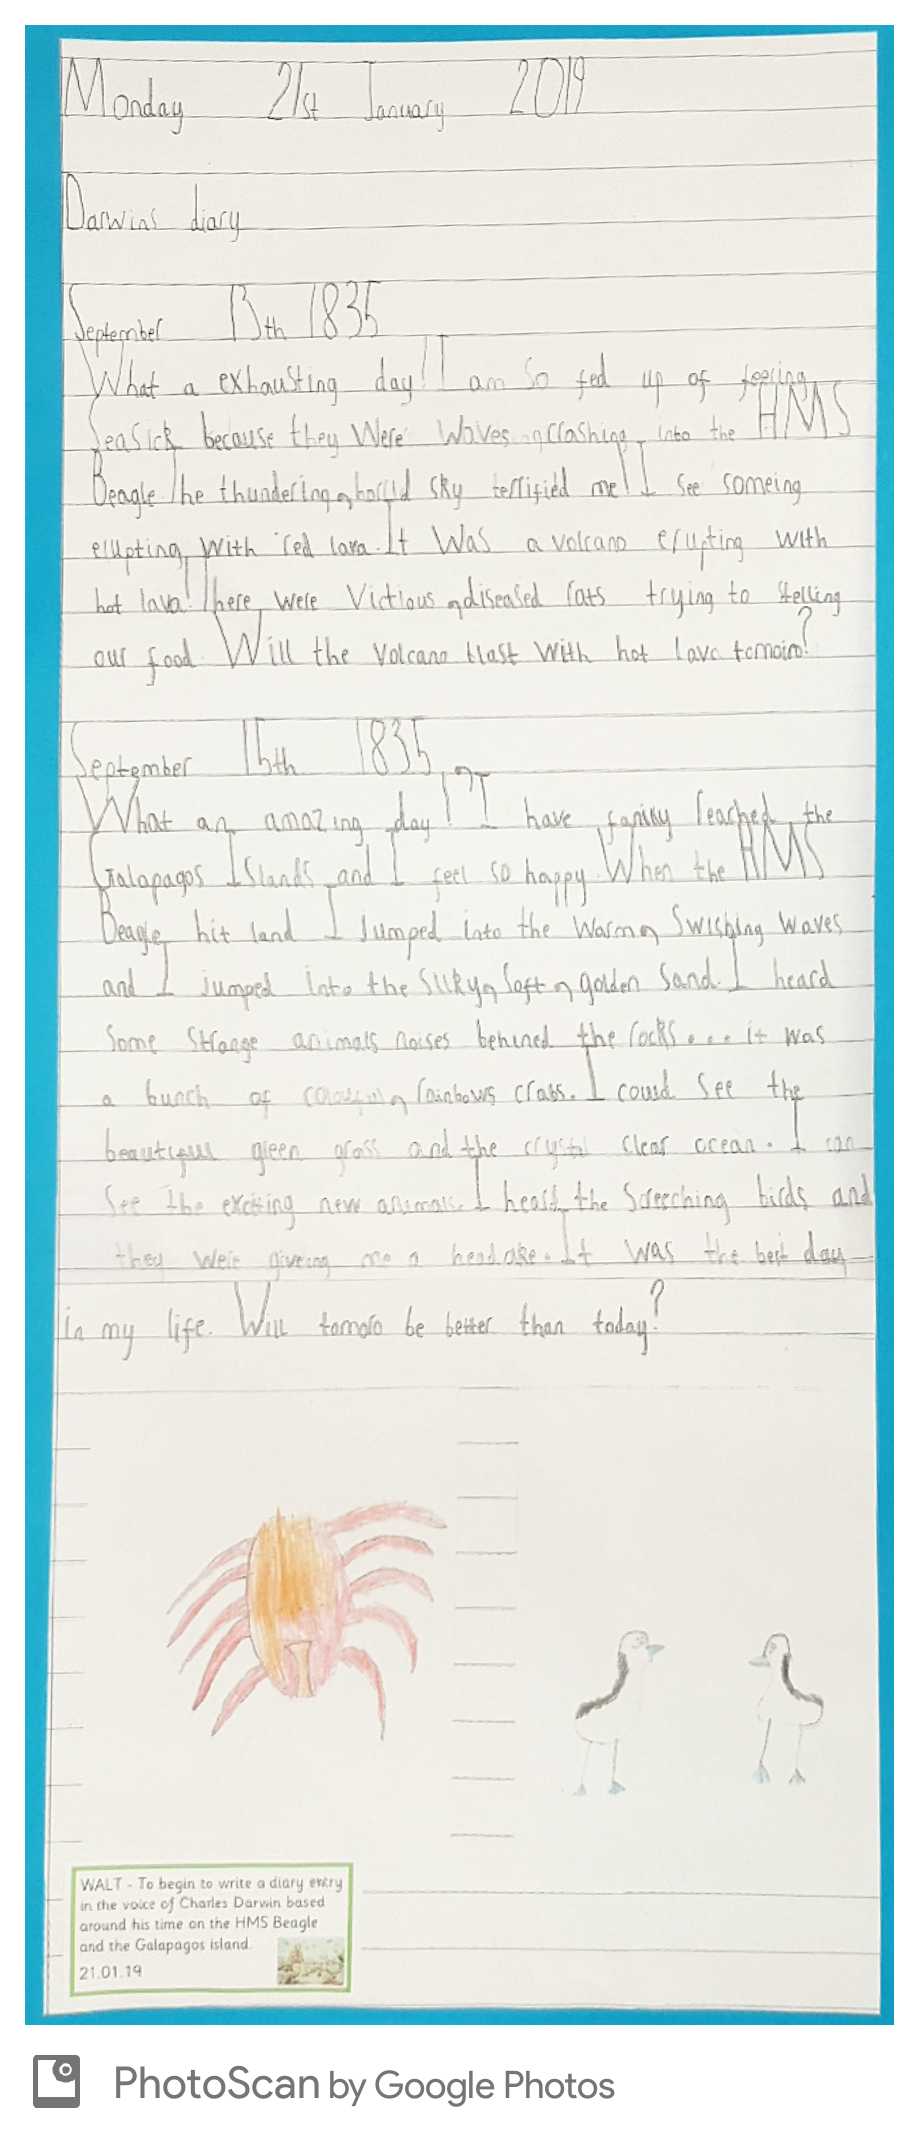 Monday 21st January 2019
Darwins diary
September 13th 1835
What a exhausting day! I am so fed up of feeling
Seasick because they Were Waves crashing into the HMS
Beagle. The thundering, horrid sky terrified me! I see someing
erupting, With red lava. It Was a volcano erupting with
hot lava! There were Victious, diseased rats trying to stelling
our food. Will the Volcano blast With hot lava tomoro?
September 15th 1835
What an amazing day! I have reached the
Galapagos Islands and I feel so happy. When the HMS
Beagle hit land I Jumped into the warm, Swishing waves
and I jumped into the silky, Soft, golden Sand. I heard
Some Strange animals noises behined the rocks... it was
a bunch of rainbows crabs. I could see the
beautiful green grass and the crystal clear ocean. I can
See The exciting new animals. I heard the Screeching birds and
they were giveing me a headake. It was the best day
in my life. Will tomoro be better than today?
WALT - To begin to write a diary entry
in the voice of Charles Darwin based
around his time on the HMS Beagle
and the Galapagos island.
21.01.19
PhotoScan by Google Photos